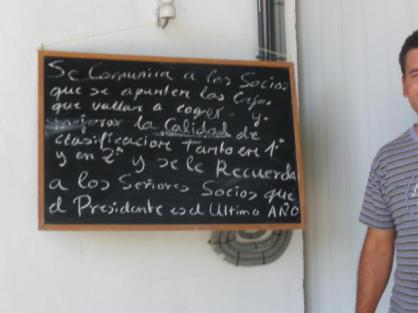 Se Comunica a los Socios
que se apunten las Cajas
que vallan a coger y
mejorar la Calidad de
clasificacion Tanto en 1ª
y en 2ª y se le Recuerda
a los Señores Socios que
el Presidente es el Ultimo AÑO